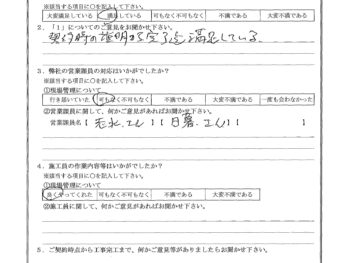 ※該当する項目に○を記入して下さい。
大変満足している 満足している 可もなく不可もなく 不満である 大変不満である
2．「1」についてのご意見をお聞かせ下さい。
契約時の説明から完了迄満足している。
3．弊社の営業課員の対応はいかがでしたか？
※該当する項目に○を記入して下さい。
①現場管理について
行き届いていた 可もなく不可もなく 不満である 大変不満である 一度も会わなかった
②営業課員に関して、何かご意見があればお聞かせ下さい。
営業課員名
4．施工員の作業内容等はいかがでしたか？
※該当する項目に○を記入して下さい。
①現場管理について
良くやってくれた 可もなく不可もなく 不満である 大変不満である
②施工員に関して、何かご意見があればお聞かせ下さい。
5．ご契約時点から工事完工まで、何かご意見等がありましたらお聞かせ下さい。